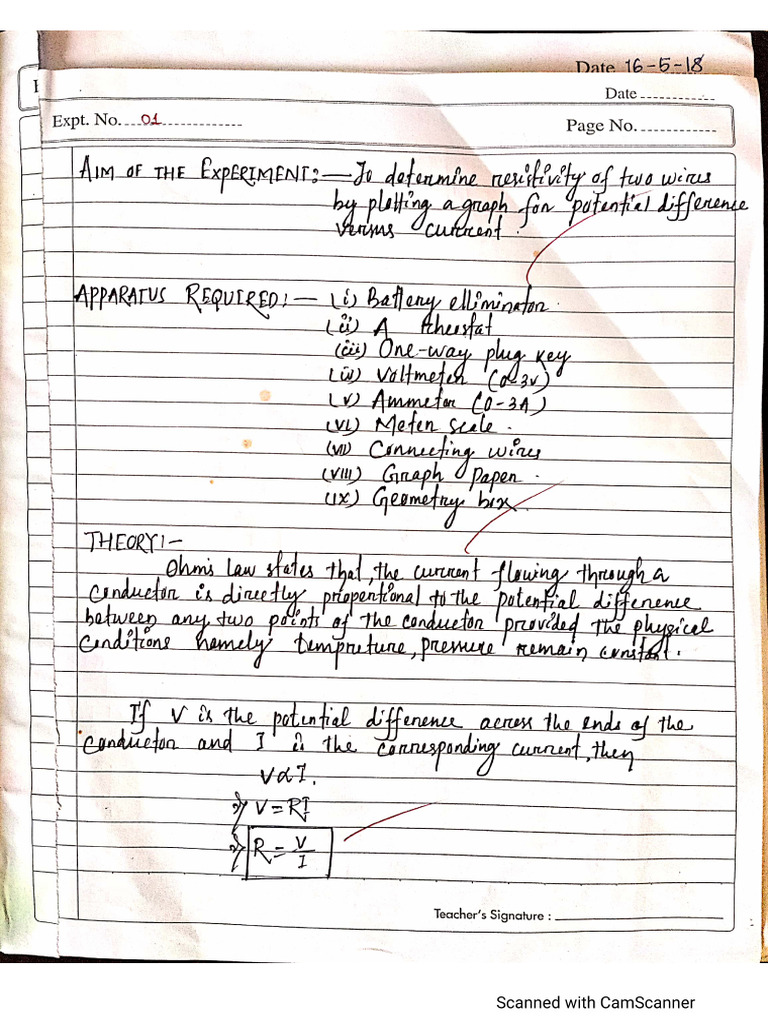 Date 16-5-18
Date
Expt. No. 01
Page No.
AIM OF THE EXPERIMENT:- To determine resistivity of two wires
by plotting a graph for potential difference
versus current.
APPARATUS REQUIRED:- (i) Battery elliminator.
(ii) A Rheostat
(iii) One-way plug key
(iv) Voltmeter (0-3V)
(v) Ammeter (0-3A)
(vi) Meter scale.
(vii) Connecting wires
(VIII) Graph Paper.
(ix) Geometry box
THEORY:-
Ohm's Law states that, the current flowing through a
conductor is directly proportional to the potential difference
between any two points of the conductor provided the physical
conditions namely tempreture, pressure remain constant.
If V is the potential difference across the ends of the
conductor and I is the corresponding current, then
V∝I.
⇒ V = RI
⇒ R = V/I
Teacher's Signature :
Scanned with CamScanner